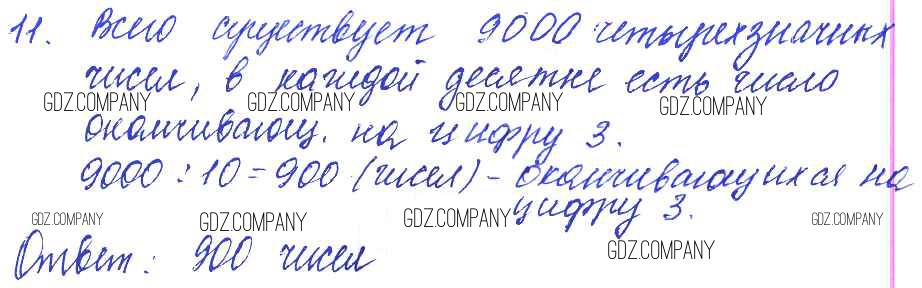 11. Всего существует 9000 четырехзначных
чисел, в каждой десятке есть число
GDZ.COMPANY GDZ.COMPANY GDZ.COMPANY GDZ.COMPANY
оканчивающ. на цифру 3.
9000 : 10 = 900 (чисел) – оканчивающихся на
цифру 3.
GDZ.COMPANY GDZ.COMPANY GDZ.COMPANY GDZ.COMPANY
Ответ: 900 чисел
GDZ.COMPANY